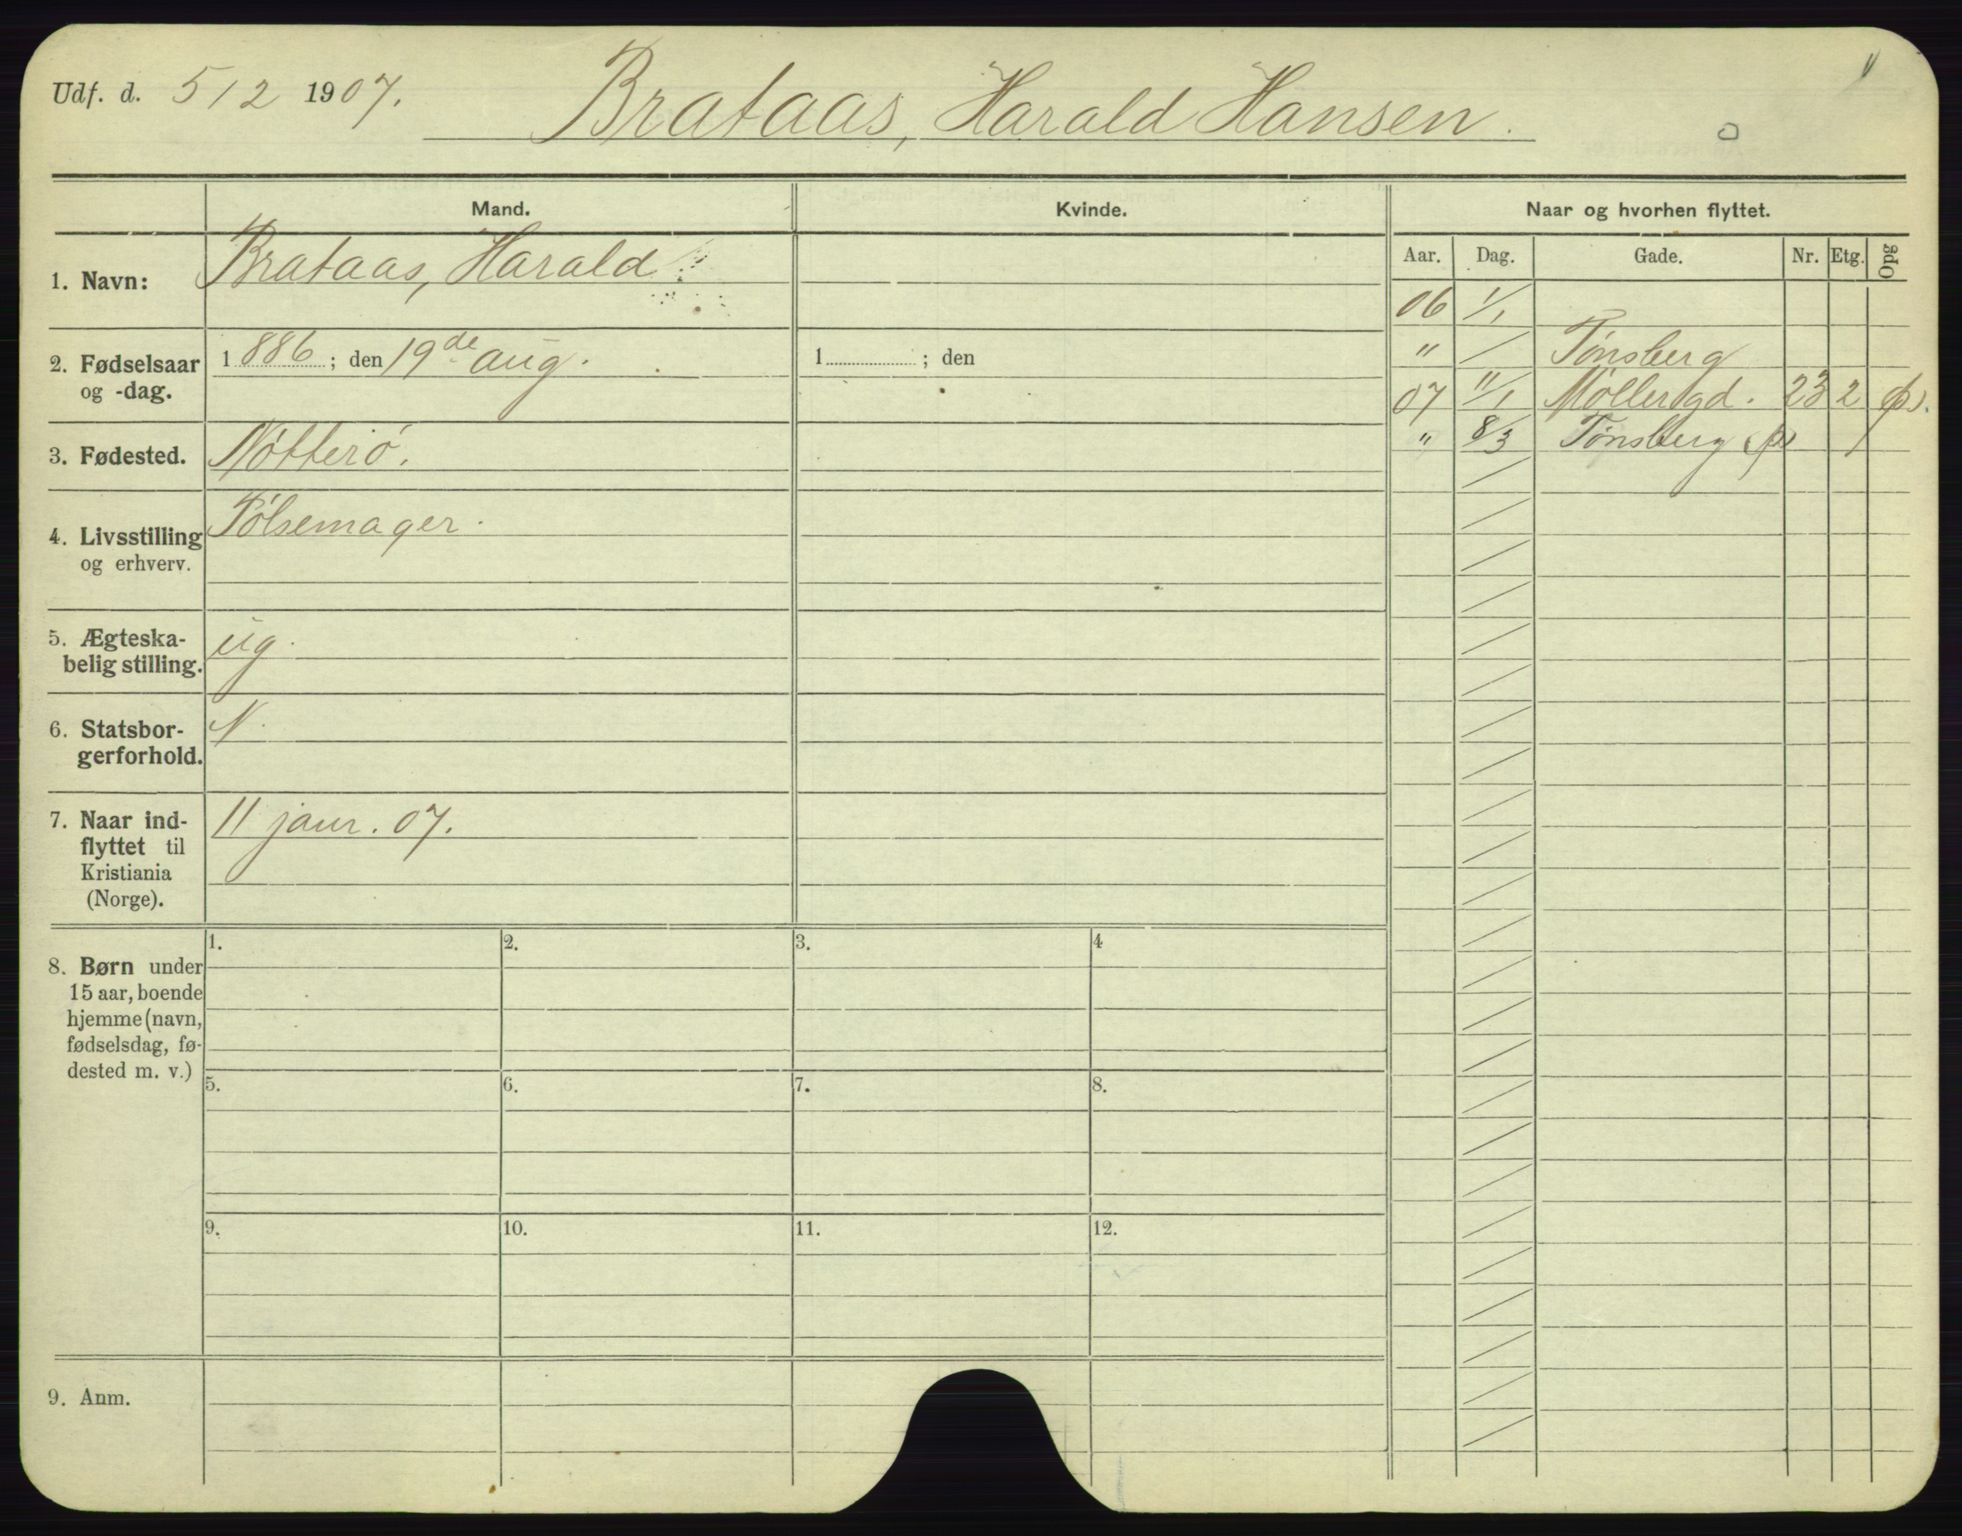 Udf. d. 5/2 1907.
Brataas, Harald Hansen.
Mand.
Kvinde.
Naar og hvorhen flyttet.
Aar. Dag. Gade. Nr. Etg. Opg
1. Navn: Brataas, Harald
2. Fødselsaar og -dag. 1886; den 19de aug.
1 ; den
3. Fødested. Nøtterö.
4. Livsstilling og erhverv. Pølsemager.
5. Ægteska-
belig stilling. ug.
6. Statsbor-
gerforhold. N.
7. Naar ind-
flyttet til
Kristiania
(Norge). 11 janr. 07.
06 1/1
" / Tønsberg
07 11/1 Møllergd. 23 2
" 8/3 Tønsberg
8. Børn under
15 aar, boende
hjemme (navn,
fødselsdag, fø-
dested m. v.)
1. 2. 3. 4
5. 6. 7. 8.
9. 10. 11. 12.
9. Anm.